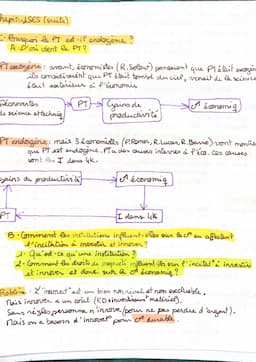 Chapitre 1 SES (suite)
I- Pourquoi le PT est-il endogène ?
A. D'où vient le PT ?
PT exogène : avant, économistes (R. Solow) pensaient que PT était exogène
ils considéraient que PT était tombé du ciel, venait de la science
était extérieur à l'économie
Découvertes de science et techniq → PT → Gains de productivité → ↗ économiq
PT endogène : mais 3 économistes (P. Romer, R. Lucas, R. Barro) vont montrer
que PT est endogène. PT a des causes internes à l'éco. Ces causes
sont les I dans 4K.
gains de productivité → ↗ économiq
PT ← I dans 4K
B- Comment les institutions influent-elles sur la c° en affectant
l'incitation à investir et innover ?
1- Qu'est-ce qu'une institution ?
2- Comment les droits de propriété influent-ils sur l'incitat° à investir
et innover et donc sur la c° économiq ?
Problème : L'innovat° est un bien non rival et non exclusable.
Mais innover a un coût (KD + investisse° matériel).
Sans règles personne n'innove (pour ne pas perdre d'argent).
Mais on a besoin d'innovat° pour c° durable.